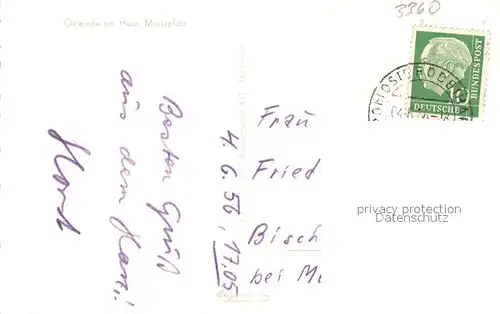 3360
Osterode am Harz, Marktplatz
DEUTSCHE
BUNDESPOST
Besten Gruß
aus dem Harz!
Horst
4. 6. 56, 17.05
Frau
Fried
Bisch
bei M
privacy protection
Datenschutz